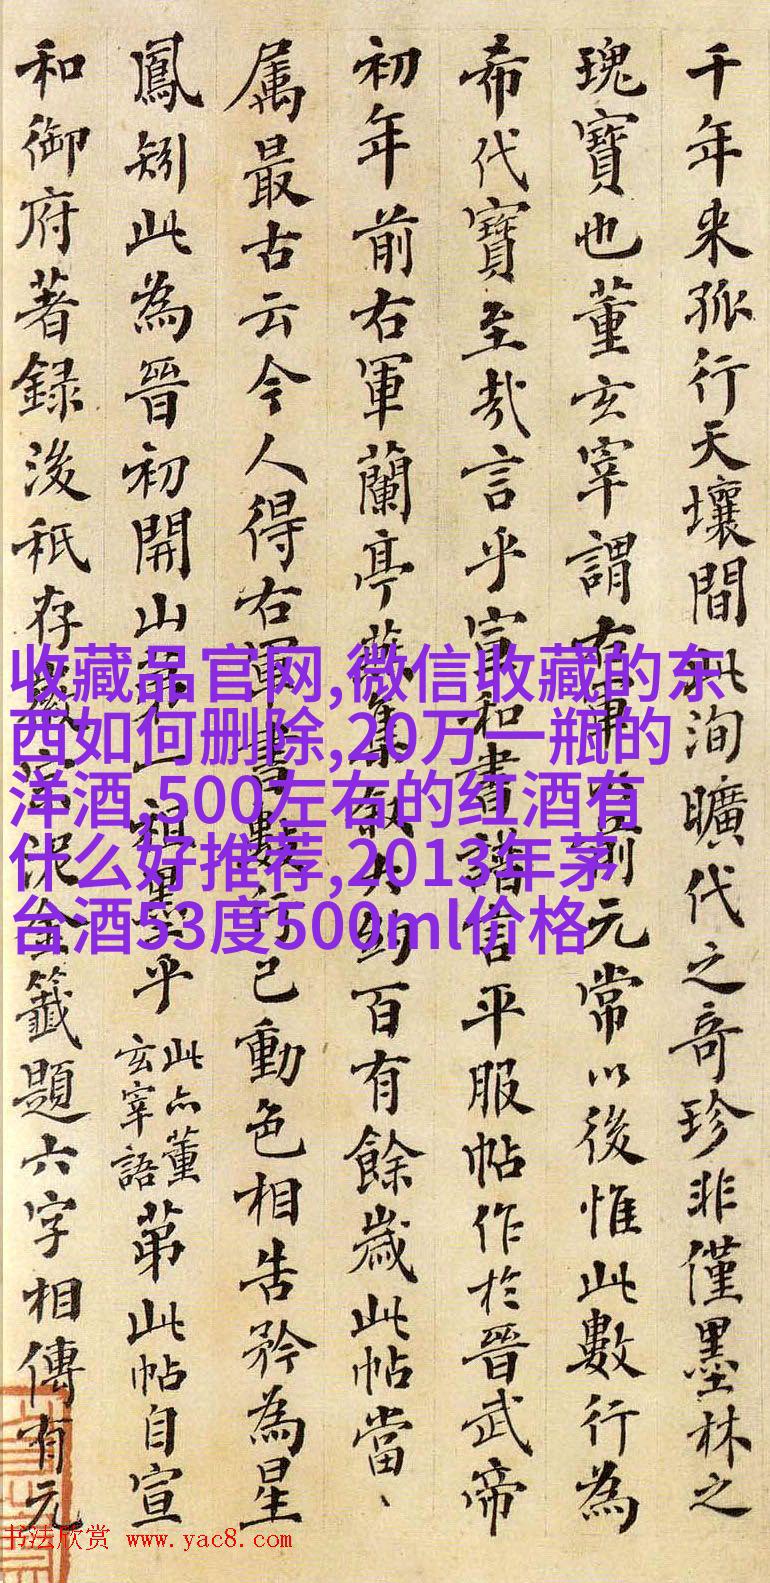 千年来孤行天壤間此洵曠代之奇珍非僅墨林之
瑰寶也董玄宰謂右軍以前元常以後惟此數行為
希代寶至哉言乎富和書譜信平服帖作於晉武帝
初年前右軍蘭亭燕集叙大約百有餘歲此帖當、
属最古云今人得右軍書數行已動色相告矜為星
鳳矧此為晉初開山第一祖墨乎
此亦董
玄宰語
第此帖自宣
和御府著録後秖存徽宗泥金籤題六字相傳有元
收藏品官网,微信收藏的东
西如何删除,20万一瓶的
洋酒,500左右的红酒有
什么好推荐,2013年茅
台酒53度500ml价格
书法欣赏 www.yac8.com